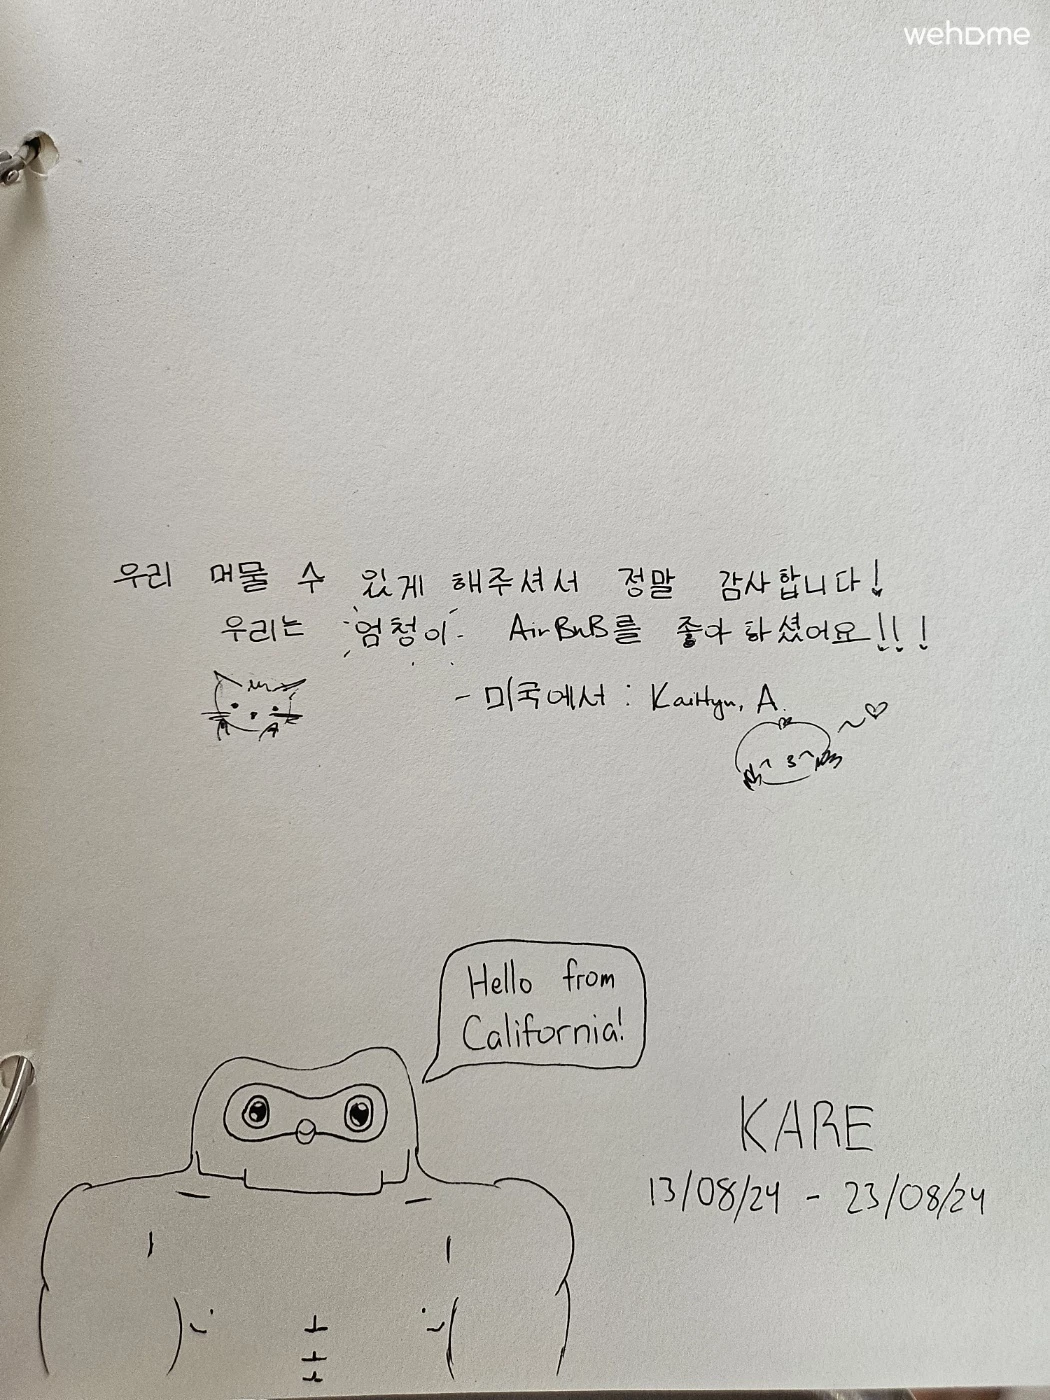 wehome
우리 머물 수 있게 해주셔서 정말 감사합니다!
우리는 엄청이 AirBnB를 좋아하셨어요!!!
- 미국에서 : KaiHyu, A.
Hello from
California!
KARE
13/08/24 - 23/08/24